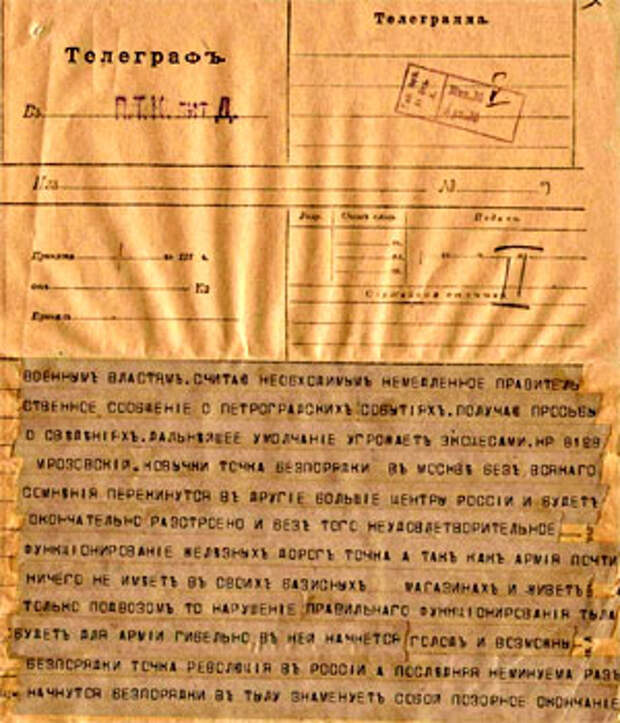 Телеграмма.
Телеграфъ.
Въ П.Т.К. лит Д.
№
Разр. Счетъ словъ
Принята
Принялъ
II
ВОЕННЫМЪ ВЛАСТЯМЪ.СЧИТАЮ НЕОБХОДИМЫМЪ НЕМЕДЛЕННОЕ ПРАВИТЕЛЬ
СТВЕННОЕ СООБЩЕНІЕ О ПЕТРОГРАДСКИХЪ СОБЫТІЯХЪ.ПОЛУЧАЮ ПРОСЬБЫ
О СВѢДѢНІЯХЪ.ДАЛЬНѢЙШЕЕ УМОЛЧАНІЕ УГРОЖАЕТЪ ЭКСЦЕСАМИ.НР 8129
МРОЗОВСКІЙ.КОВЫЧКИ ТОЧКА БЕЗПОРЯДКИ ВЪ МОСКВѢ БЕЗЪ ВСЯКАГО
СОМНѢНІЯ ПЕРЕКИНУТСЯ ВЪ ДРУГІЕ БОЛЬШІЕ ЦЕНТРЫ РОССІИ И БУДЕТЪ
ОКОНЧАТЕЛЬНО РАЗСТРОЕНО И БЕЗЪ ТОГО НЕУДОВЛЕТВОРИТЕЛЬНОЕ
ФУНКЦІОНИРОВАНІЕ ЖЕЛѢЗНЫХЪ ДОРОГЪ ТОЧКА А ТАКЪ КАКЪ АРМІЯ ПОЧТИ
НИЧЕГО НЕ ИМѢЕТЪ ВЪ СВОИХЪ БАЗИСНЫХЪ МАГАЗИНАХЪ И ЖИВЕТЪ
ТОЛЬКО ПОДВОЗОМЪ ТО НАРУШЕНІЕ ПРАВИЛЬНАГО ФУНКЦІОНИРОВАНІЯ ТЫЛА
БУДЕТЪ ДЛЯ АРМІИ ГИБЕЛЬНО ВЪ НЕЙ НАЧНЕТСЯ ГОЛОДЪ И ВОЗМОЖНЫ
БЕЗПОРЯДКИ ТОЧКА РЕВОЛЮЦІЯ ВЪ РОССІИ А ПОСЛѢДНЯЯ НЕМИНУЕМА РАЗЪ
НАЧНУТСЯ БЕЗПОРЯДКИ ВЪ ТЫЛУ ЗНАМЕНУЕТЪ СОБОЙ ПОЗОРНОЕ ОКОНЧАНІЕ